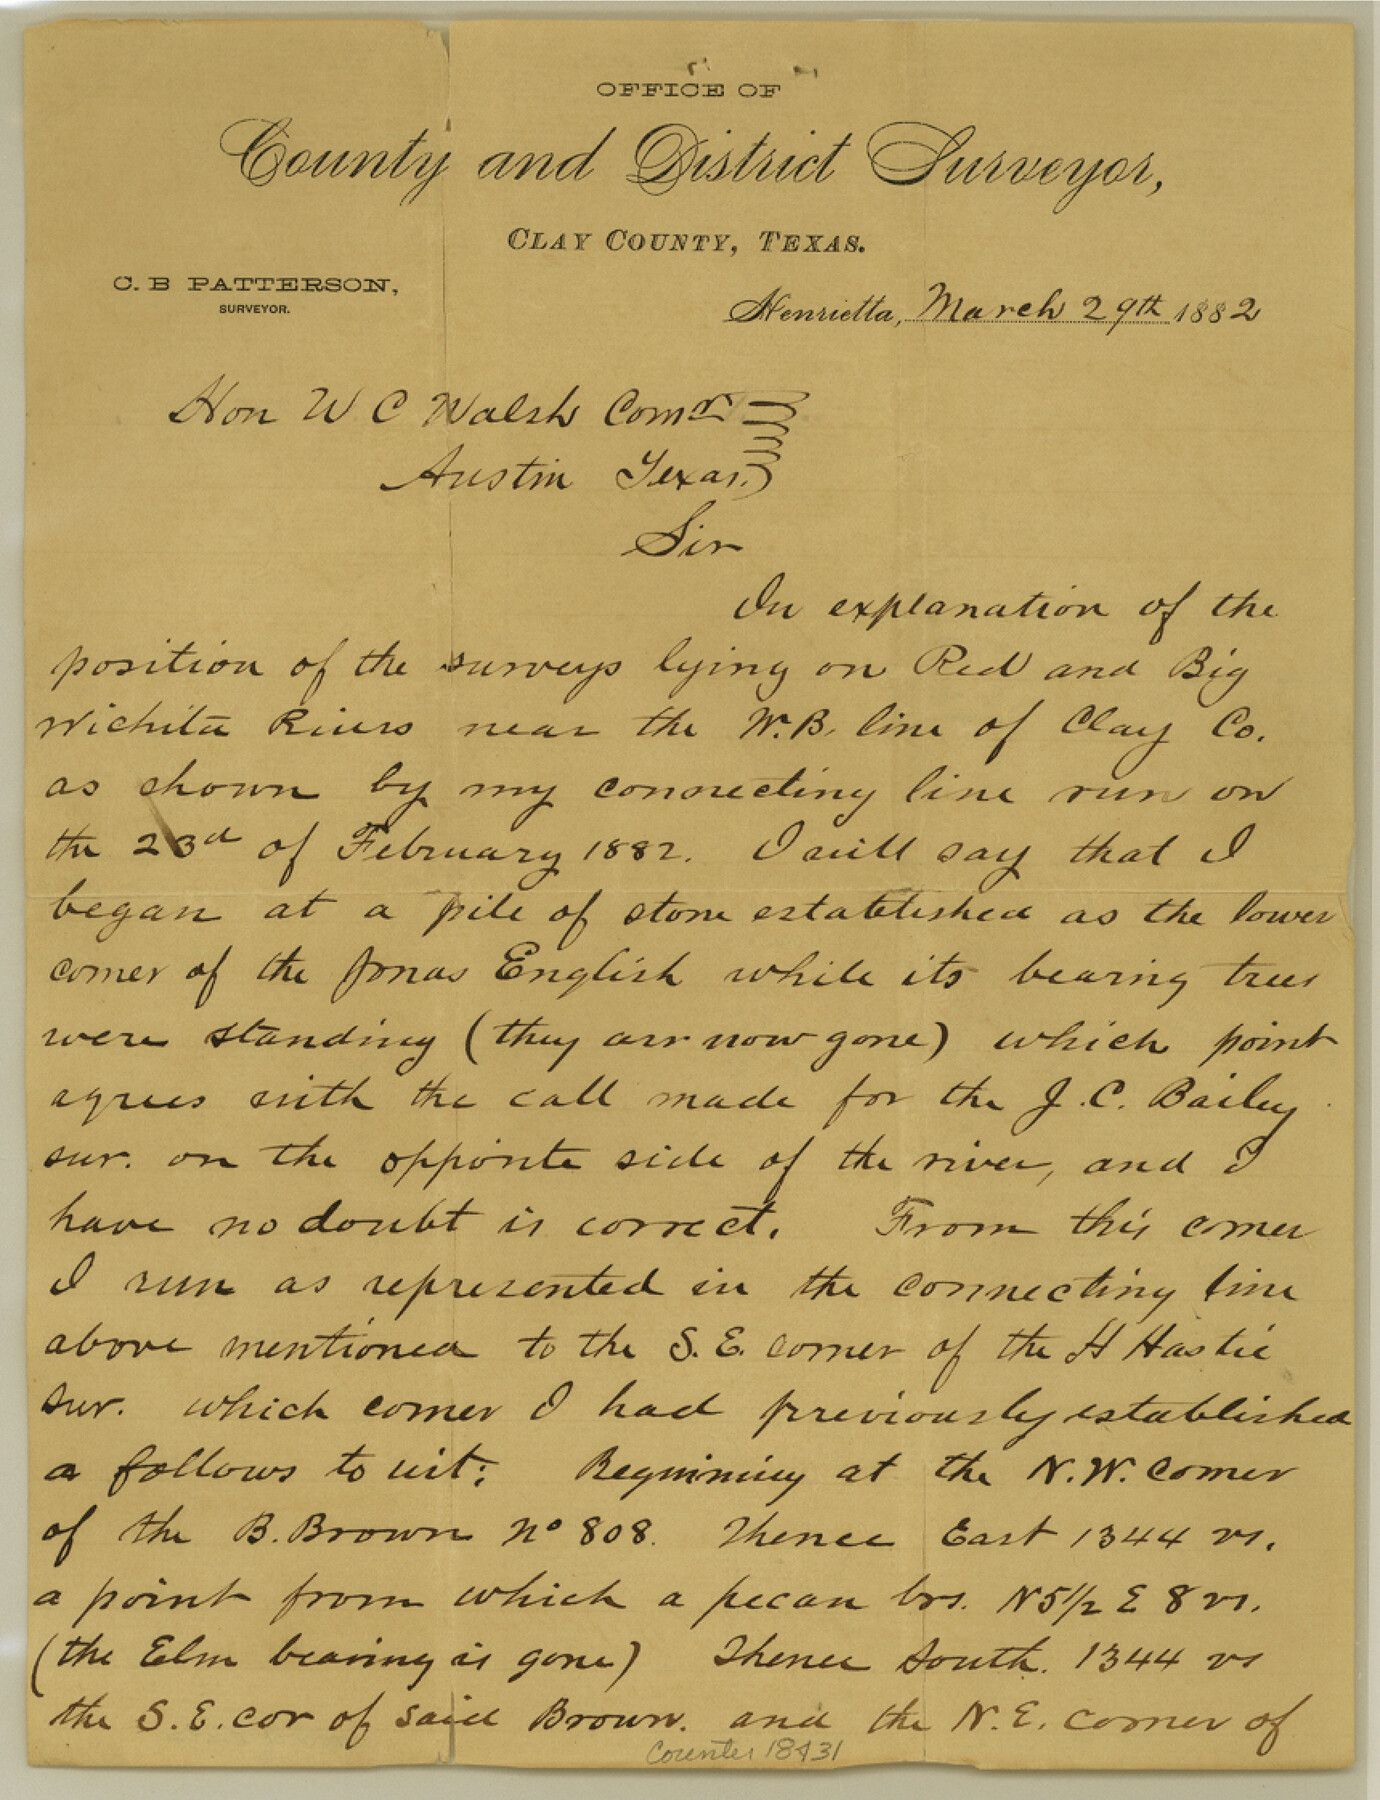 OFFICE OF
County and District Surveyor,
CLAY COUNTY, TEXAS.
C. B PATTERSON,
SURVEYOR.
Henrietta, March 29th 1882
Hon W C Walsh Comr
Austin Texas.
Sir
In explanation of the
position of the surveys lying on Red and Big
Wichita Rivers near the W.B. line of Clay Co.
as shown by my connecting line run on
the 23d of February 1882. I will say that I
began at a pile of stone established as the lower
corner of the Jonas English while its bearing trees
were standing (they are now gone) which point
agrees with the call made for the J.C. Bailey
sur. on the opposite side of the river, and I
have no doubt is correct. From this corner
I run as represented in the connecting line
above mentioned to the S.E. corner of the H Hastie
sur. which corner I had previously established
a follows to wit: Beginning at the N.W. corner
of the B. Brown No 808. Thence East 1344 vs.
a point from which a pecan brs. N 5 1/2 E 8 vs.
(the Elm bearing is gone) Thence South. 1344 vs
the S.E. cor of said Brown. and the N.E. corner of
Counter 18431